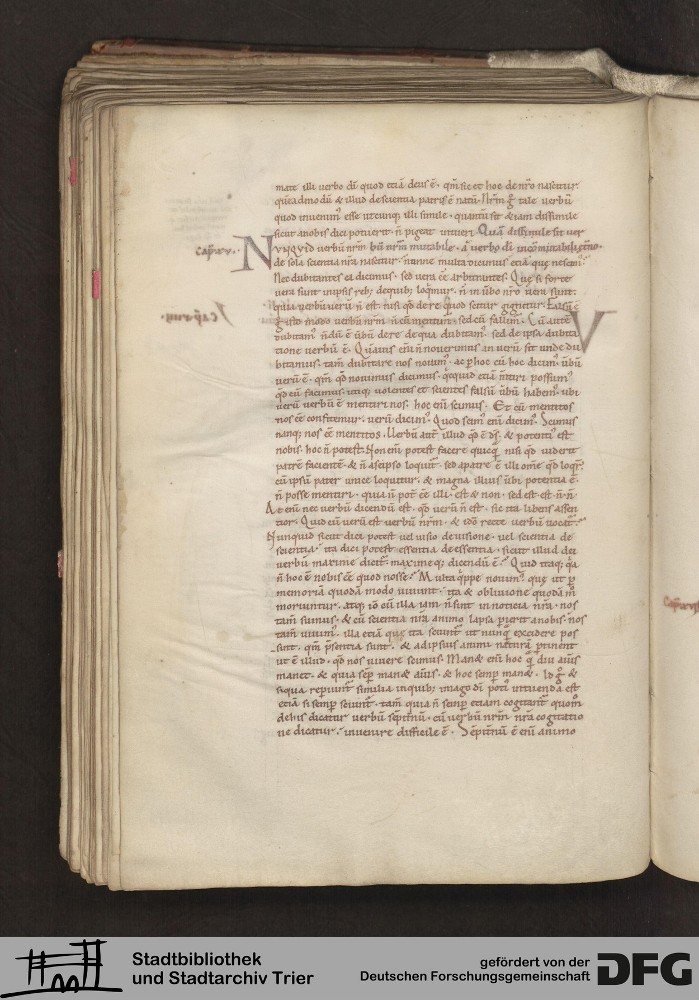 mate illi verbo dī quod etiā deus ē · qm̄ sic et hoc de nr̄o nascitur
quēadmodū & illud de scientia patris ē natū · Nr̄m ḡ tale verbū
quod invenim' esse utcunq; illi simile · quantū sit & iam dissimile
sicut a nobis dici potuerit · n̄ pigeat intueri · Quā dissimile sit ver
Cap̄ xv. NUNQUID verbū nr̄m bū nr̄m mutabile · a verbo dī incōmutabili
de sola scientia nr̄a nascitur · nonne multa dicimus etiā quę nescim'
Nec dubitantes ea dicimus · sed vera ēē arbitrantes · Quę si forte
vera sunt · in ipsis reb; de quib; loqm̄ur · n̄ in ūbo nr̄o vera sunt ·
quia verbū verū n̄ est · nisi qd̄ de re q̄ scitur gignitur · Falsū ē
ḡ isto modo verbū nr̄m n̄ cū mentim̄ · sed cū fallim̄ · Cū autē
dubitam' n̄dū ē ūbū de re de qua dubitam' · sed de ipsa dubita
tione verbū ē · Quāvis eni n̄ noverimus an verū sit unde du
bitamus · tam̄ dubitare nos novim' · ac p hoc cū hoc dicim' · ūbū
verū ē · qm̄ qd̄ novimus dicimus · qcquid etiā m̄tiri possum'
qd̄ cū facimus · utiq; volentes et scientes falsū ūbū habem' · ubi
verū verbū ē mentiri nos · hoc eni scimus · Et cū mentitos
nos ēē confitemur · verū dicim' · Quod scim' eni dicim' · Scimus
nanq; nos ēē mentitos · Verbū aut̄ illud qd̄ ē ds̄ · & potenti' est
nobis · hoc n̄ potest · Non eni potest facere quicq̄ · nisi qd̄ viderit
patrē facientē · & n̄ a se ipso loquit̄ · sed a patre ē illi om̄e qd̄ loqt̄
cū ipsū pater unice loquitur · & magna illius ūbi potentia ē ·
n̄ posse mentiri · quia n̄ pot̄ ēē ibi · est & non · sed est est · n̄ n̄
At eni nec verbū dicendū est · qd̄ verū n̄ est · sic ita libens assen
tior · Quid cū verū est verbū nr̄m · & iđo recte verbū vocat̄
Nunquid sicut dici potest vel visio de visione · vel scientia de
scientia · ita dici potest essentia de essentia · sicut illud dei
verbū maxime dicit̄ · maximeq; dicendū ē · Quid itaq; q̄a
n̄ hoc ē nobis ēē quod nosse · Multa qppe novim' · quę ut p
memoriā quodā modo vivunt · ita & oblivione quodā m̄
moriuntur · atq; iō cū illa iam n̄ sint in noticia nr̄a · nos
tam̄ sumus · & cū scientia nr̄a animo lapsa pierit a nobis · nos
tam̄ vivim' · illa etiā quę ita sciunt̄ ut nunq̄ excidere pos
sint · qm̄ p̄sentia sunt · & ad ipsius animi naturā ptinent
ut ē illud · qd̄ nos vivere scimus · Manet eni hoc q̄ diu anius
manet · & quia semp manet anius · & hoc semp manet · Id ḡ &
siqua repiunt̄ similia in quib; imago dī poti' intuenda est
etiā si semp sciunt̄ · tam̄ quia n̄ semp etiam cogitant̄ quom̄
de his dicatur verbū sēpit̄nū · cū verbū nr̄m nr̄a cogitatio
ne dicatur · invenire difficile ē · Sēpit̄nū ē eni animo
Stadtbibliothek
und Stadtarchiv Trier
gefördert von der
Deutschen Forschungsgemeinschaft
DFG